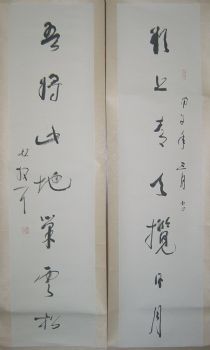 欲上青天攬日月
甲子年三月
吾將此地巢雲松